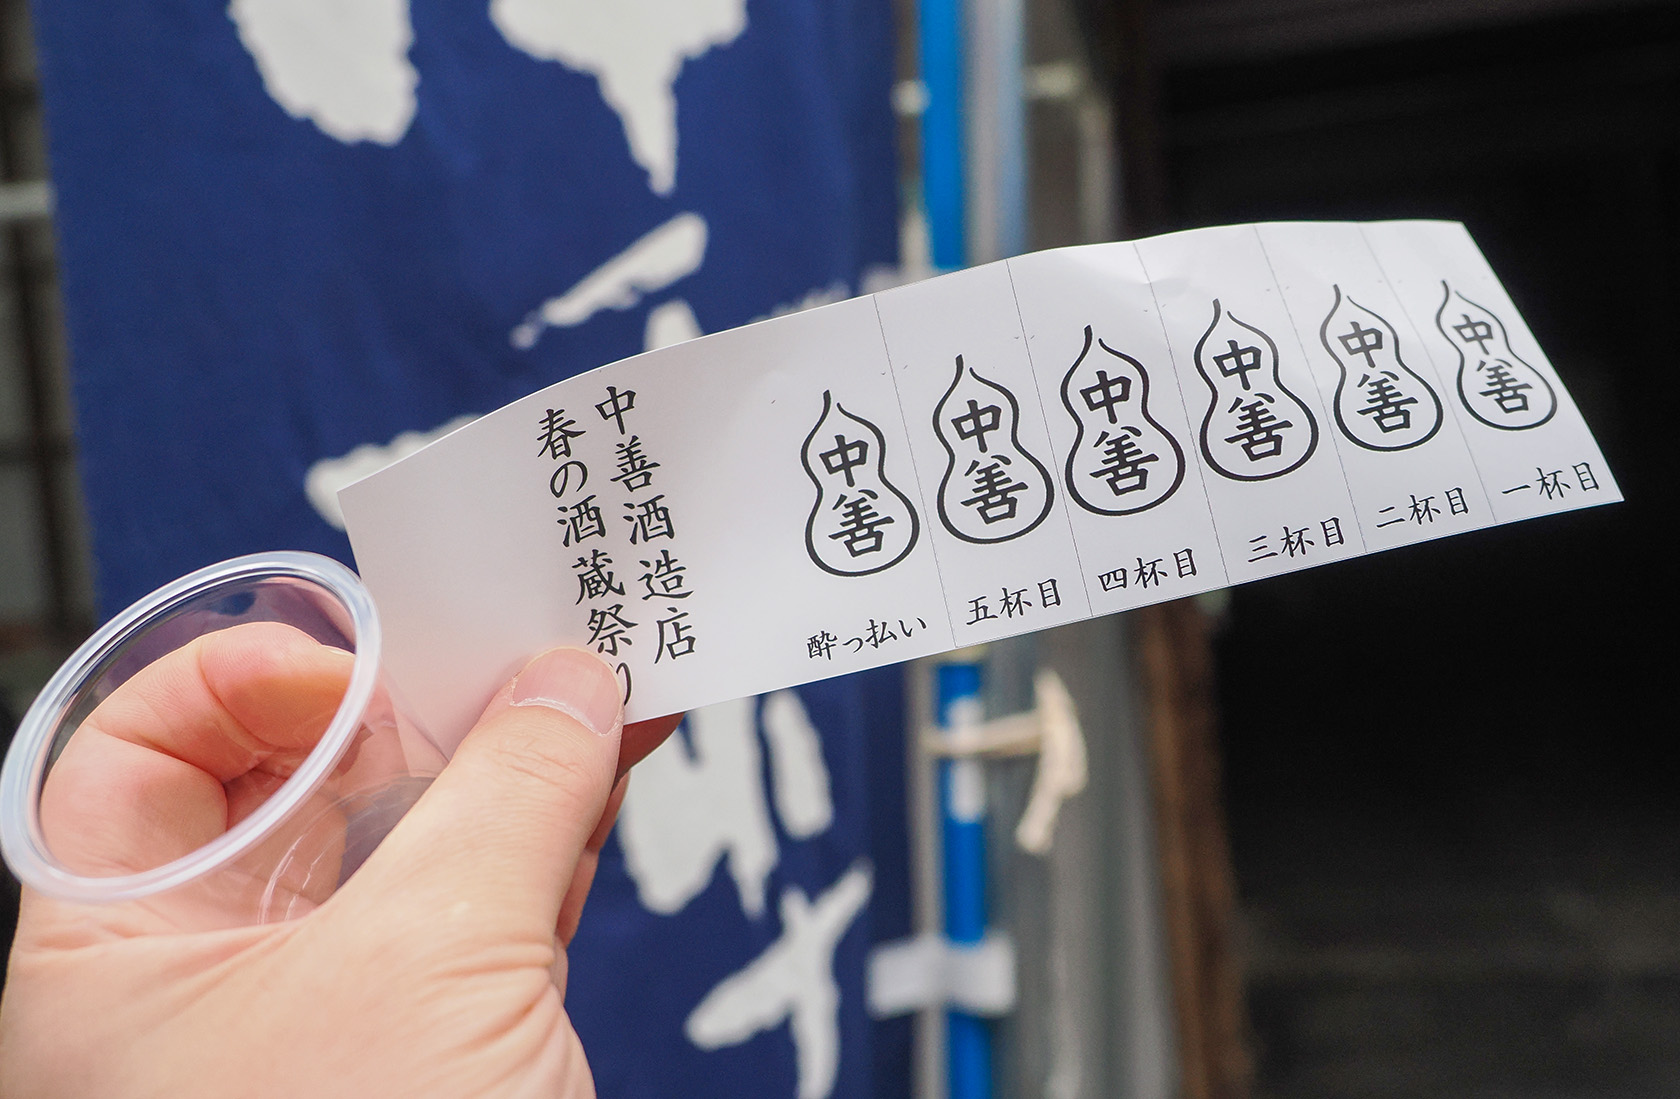 中善酒造店
春の酒蔵祭り
中善
一杯目
中善
二杯目
中善
三杯目
中善
四杯目
中善
五杯目
中善
酔っ払い